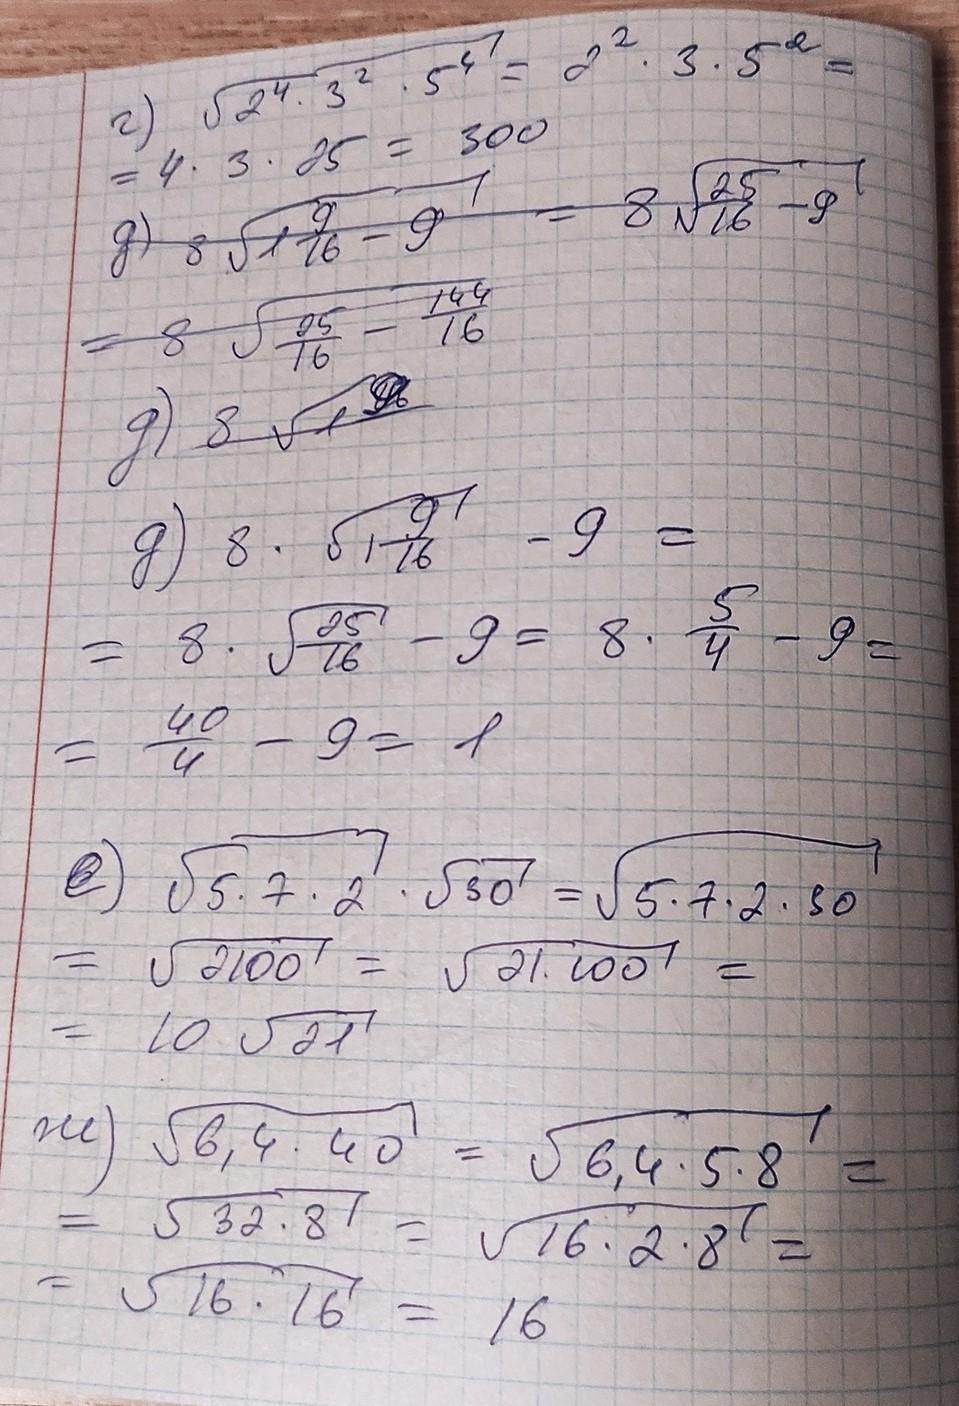 г) √(2⁴ · 3² · 5⁴) = 2² · 3 · 5² =
= 4 · 3 · 25 = 300
д) 8 √(1 9/16 - 9) = 8 √(25/16 - 9)
= 8 √(25/16 - 144/16)
д) 8 √1
д) 8 · √(1 9/16) - 9 =
= 8 · √(25/16) - 9 = 8 · 5/4 - 9 =
= 40/4 - 9 = 1
е) √(5 · 7 · 2) · √30 = √(5 · 7 · 2 · 30)
= √2100 = √(21 · 100) =
= 10 √21
ж) √(6,4 · 40) = √(6,4 · 5 · 8) =
= √(32 · 8) = √(16 · 2 · 8) =
= √(16 · 16) = 16